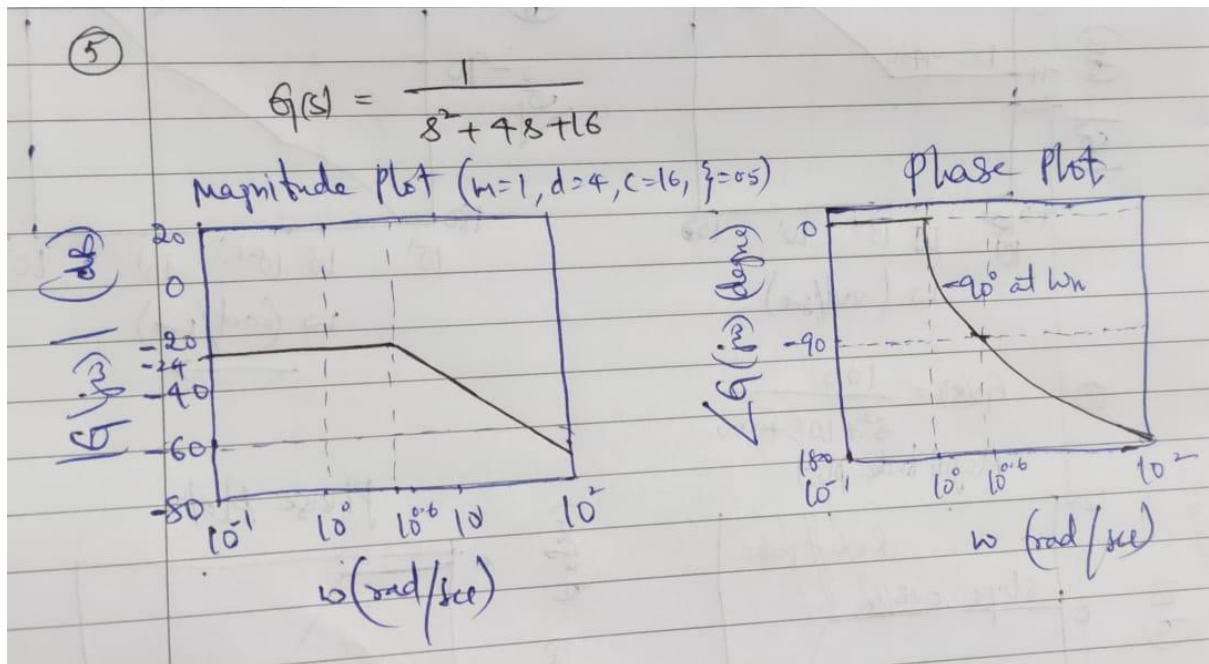 5
G(s) = 1
s² + 4s + 16
Magnitude Plot (m=1, d=4, c=16, ξ=05)
Phase Plot
20
0
-20
-24
-40
-60
-80
|G(jω)| (dB)
10⁻¹ 10⁰ 10⁰·⁶ 10¹ 10²
ω (rad/sec)
0
-90
180
∠G(jω) (degree)
-90° at ωn
10⁻¹ 10⁰ 10⁰·⁶ 10²
ω (rad/sec)